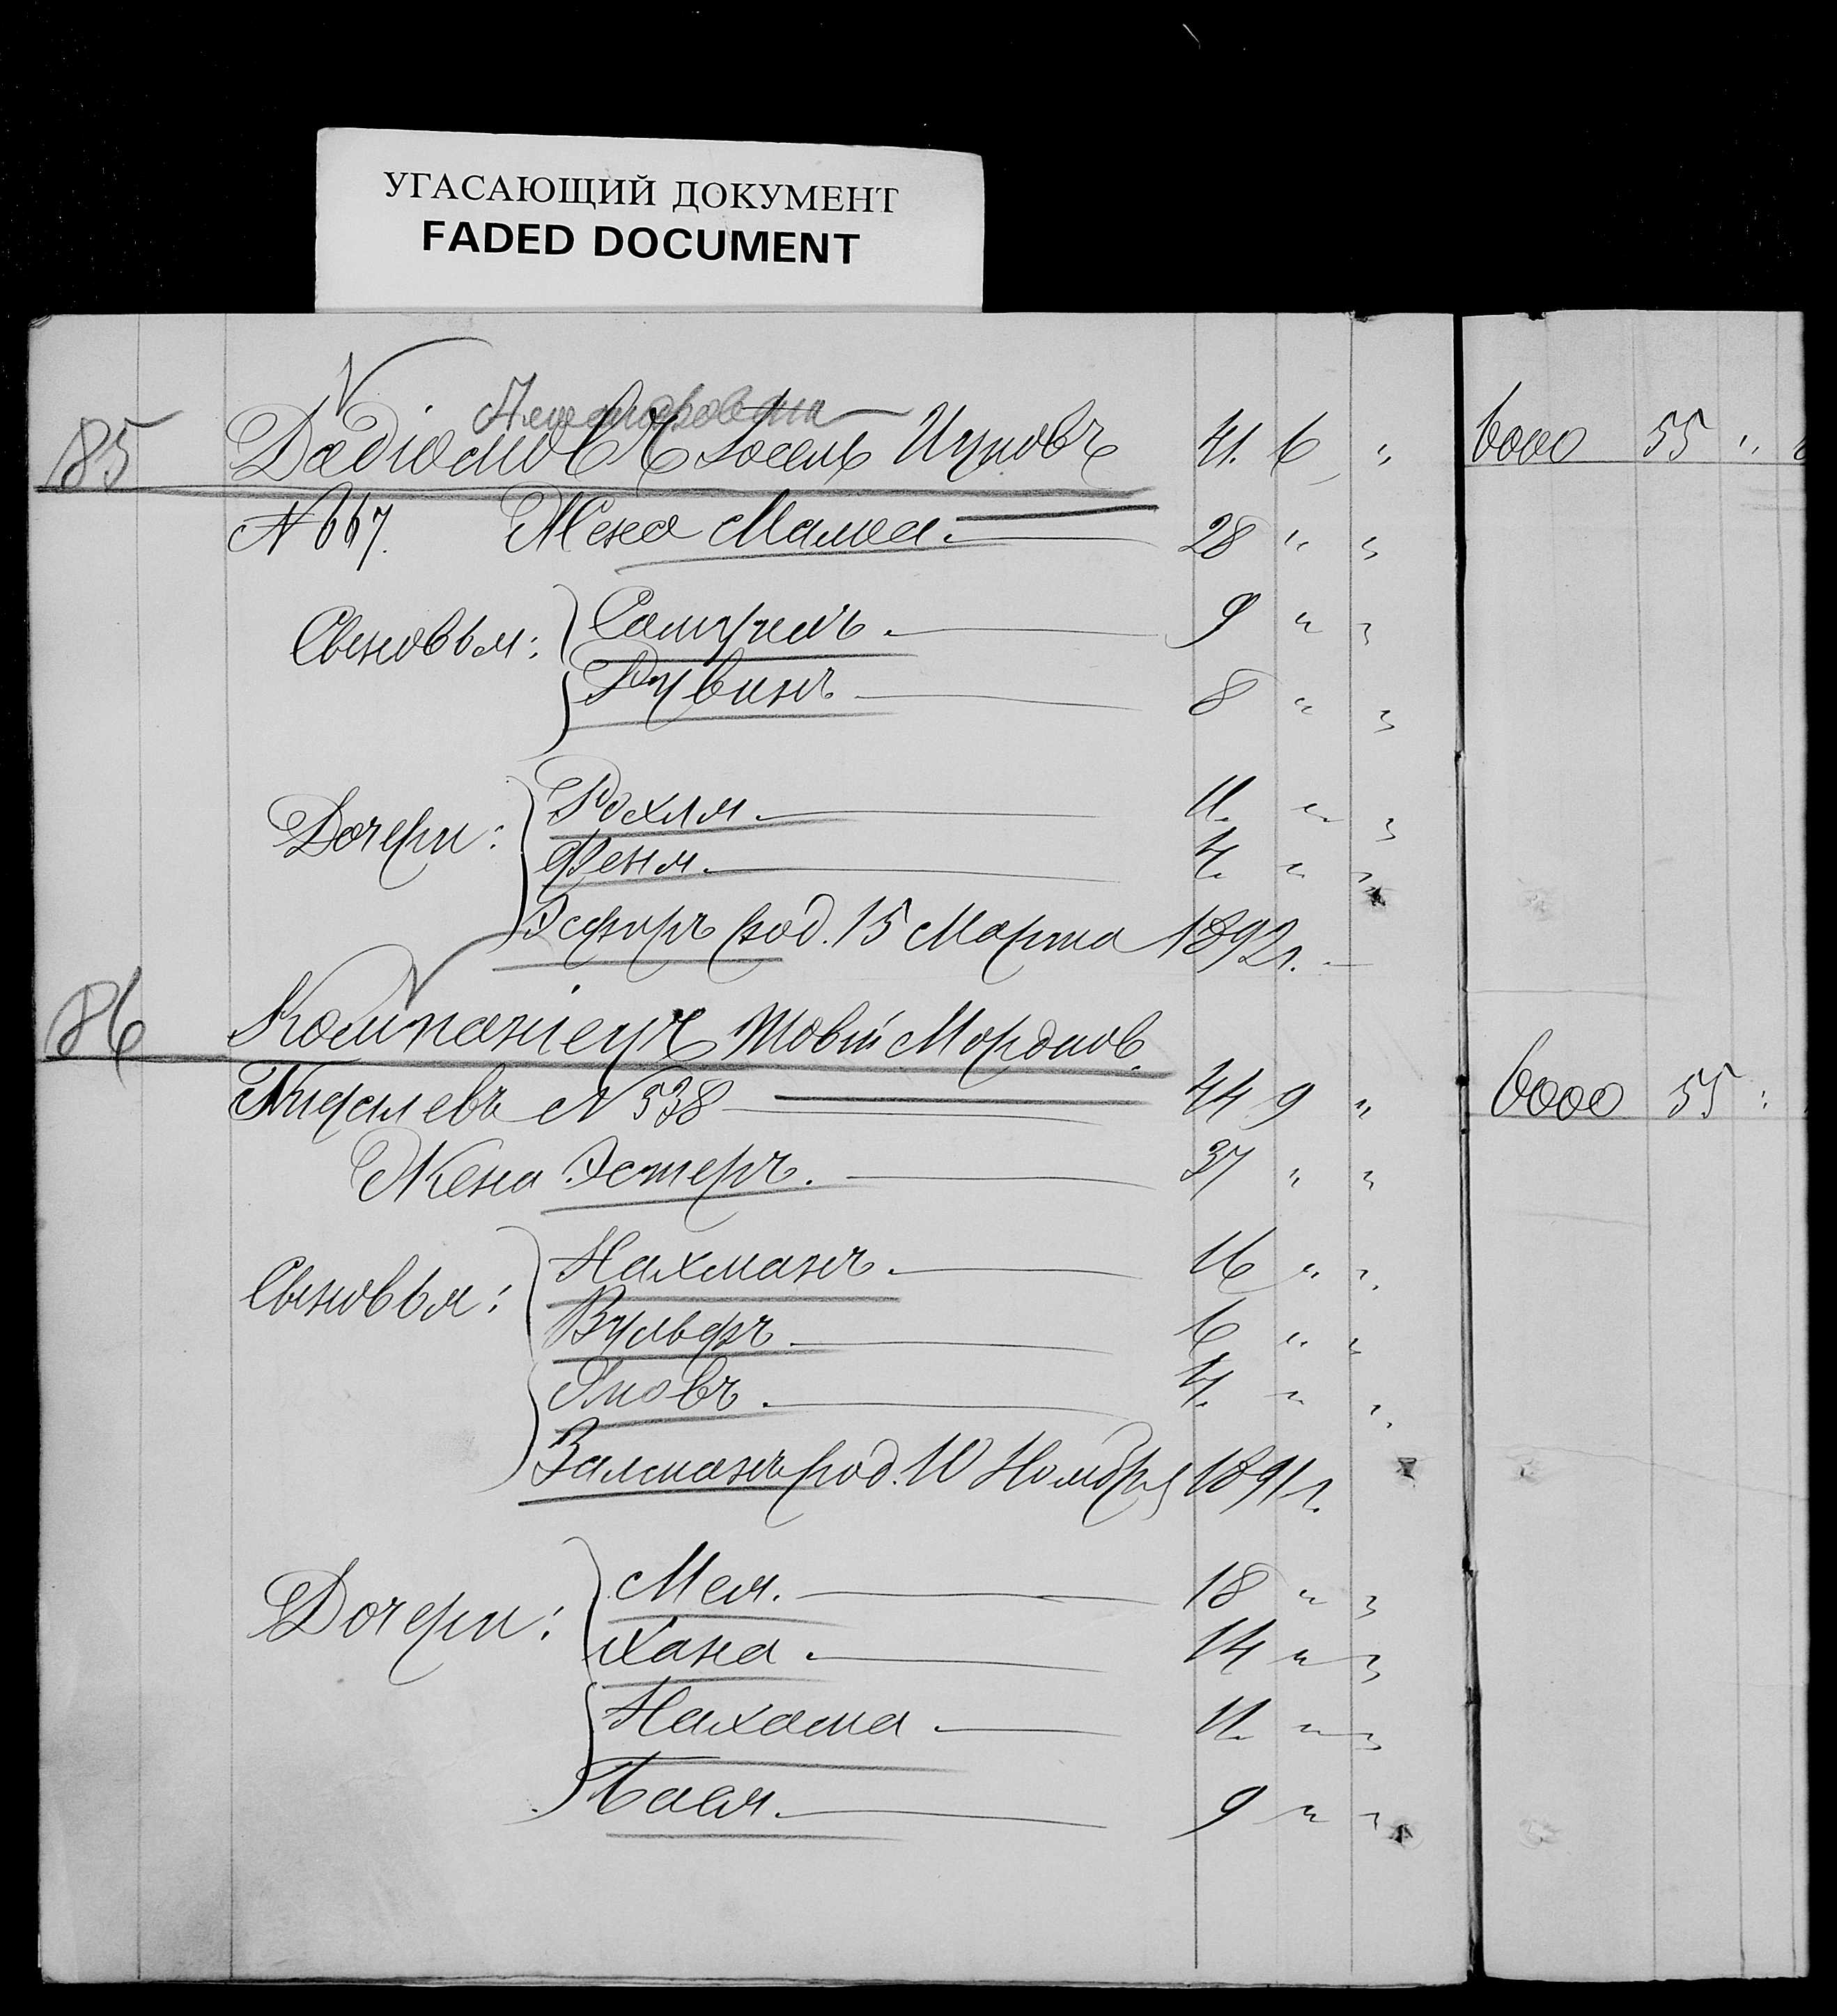 УГАСАЮЩИЙ ДОКУМЕНТ
FADED DOCUMENT
85 Іосель Ицковъ 41. 6 „ 6000 55 „
№ 667. Жена Малка. 28 „ „
Сыновья: Самуилъ. 9 „ „
Рувинъ 8 „ „
Дочери: Рохля. 11. „ „
Феня. 4. „ „
Эсфирь род. 15 Марта 1892 г.
86 Компаніецъ Товій Мордков.
№ 538 44 9 „ 6000 55 „
Жена Эстеръ. 37 „ „
Сыновья: Нахманъ. 16 „ „
Вульфъ. 6 „ „
Яковъ. 4. „ „
Залманъ род. 10 Ноября 1891 г.
Дочери: Мея. 18 „ „
Хана. 14 „ „
Нахама 11. „ „
9 „ „